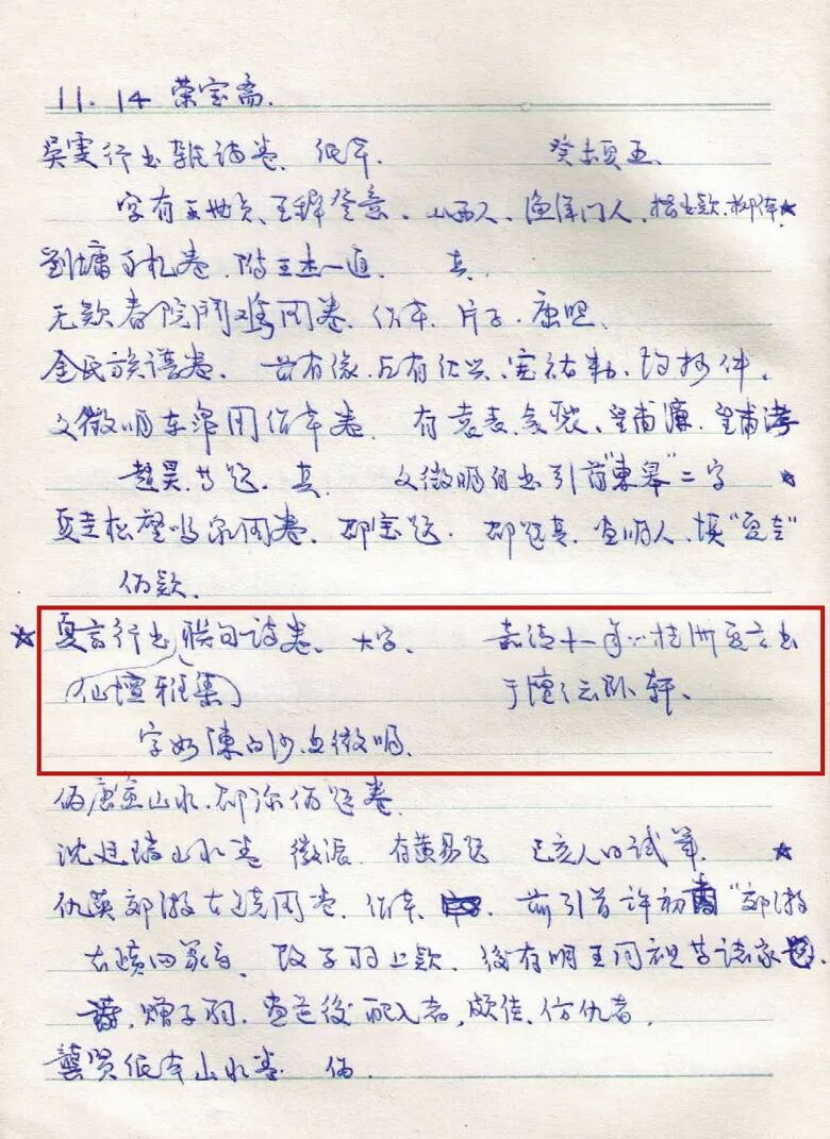 11.14 荣宝斋.
吴雯行书杂诗卷、纸本. 癸未夏五、
字有王世贞、王铎笔意、山西人、渔洋门人、
刘墉手札卷、附王杰一通. 真.
无款春院闹鸡图卷、伪本、片子、
金氏族谱卷. 前有像、后有绍兴、宝祐勅、均抄件.
文徵明东皋图伪本卷. 有袁表、袁裘、皇甫濂、皇甫涍
赵昊等题. 真. 文徵明自书引首"东皋"二字 ★
夏圭松壑鸣泉图卷、邵宝题. 邵题真、画明人、填"夏圭"
伪款.
★ 夏言行书联句诗卷、大字、 嘉靖十一年…桂洲夏言书
(仙坛雅集) 于 云卧轩、
字如陈白沙、文徵明.
伪唐 山水、邵弥伪题卷.
沈廷瑞山水卷 徽派、有黄易题 己亥人日试笔. ★
仇英郊游古迹图卷. 伪本、前引首许初书"郊游
古迹四篆首、改子羽上款. 后有明王同祖等诸家题.
诗, 赠子羽. 画是后配入者, 颇佳、仿仇者.
龚贤纸本山水卷. 伪.